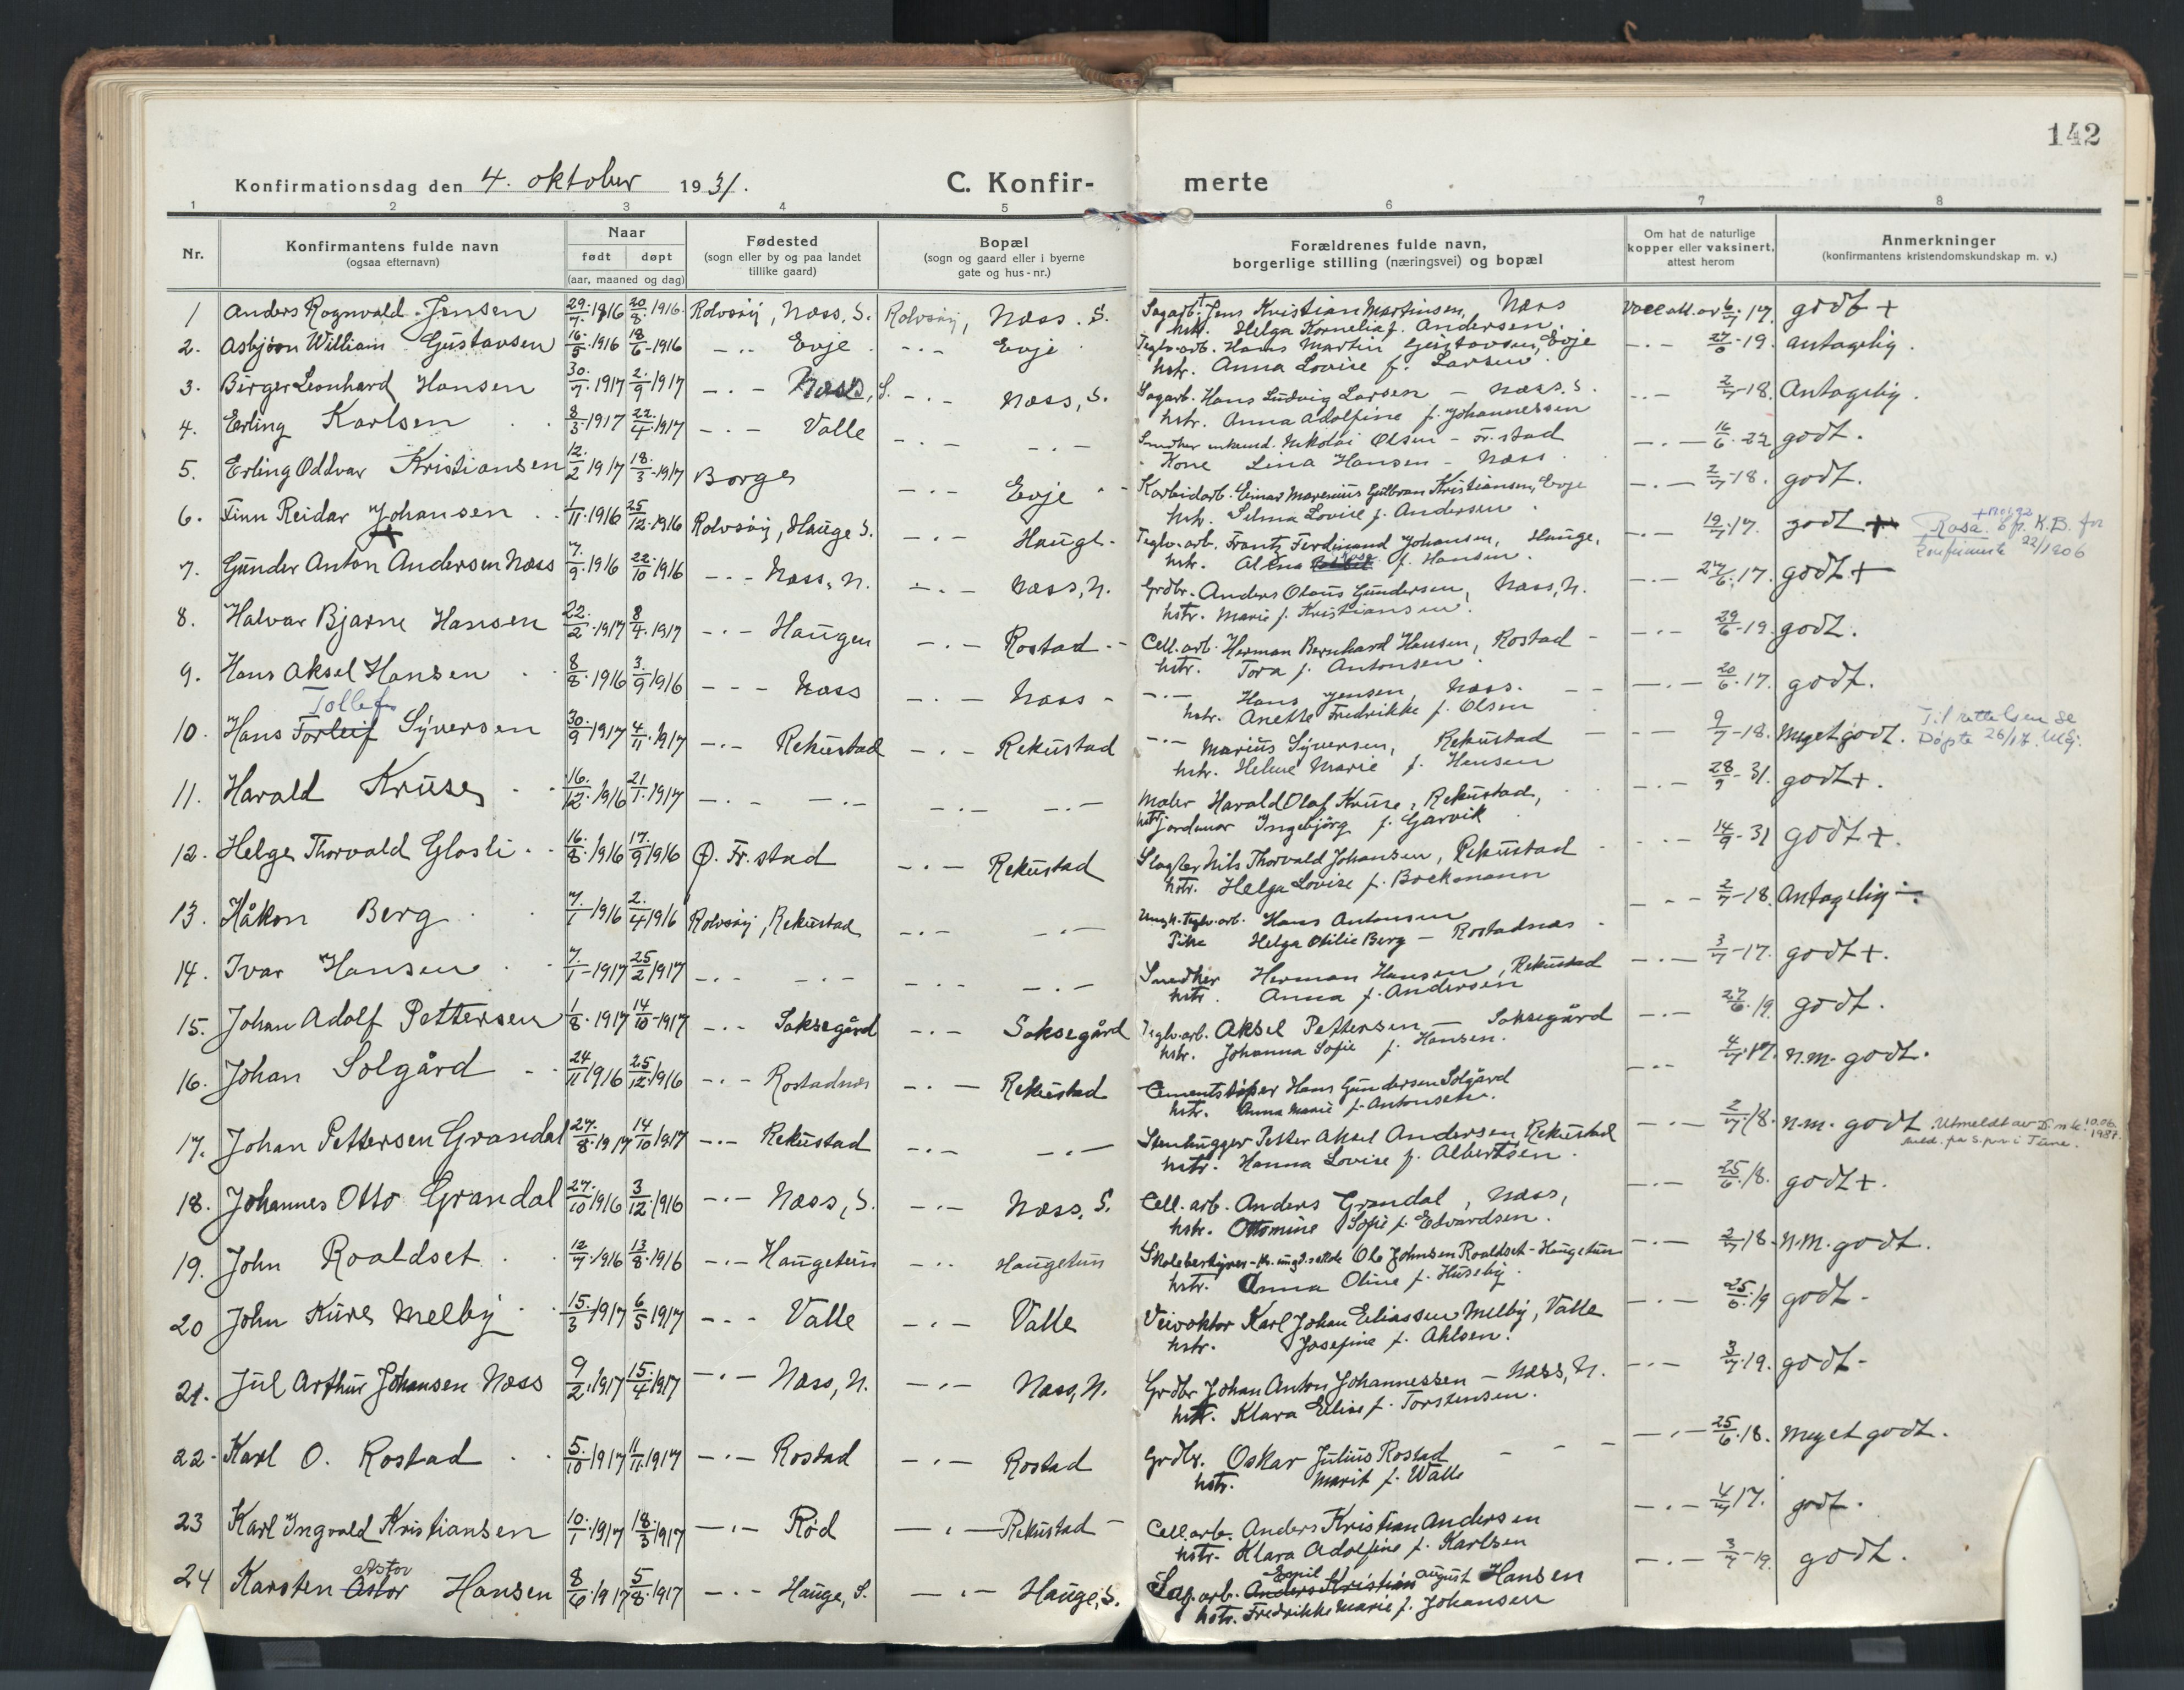 142
Konfirmationsdag den 4. oktober 1931. C. Konfir- merte
1 2 3 4 5 6 7 8
Nr.
Konfirmantens fulde navn
(ogsaa efternavn)
Naar
født døpt
(aar, maaned og dag)
Fødested
(sogn eller by og paa landet
tillike gaard)
Bopæl
(sogn og gaard eller i byerne
gate og hus-nr.)
Forældrenes fulde navn,
borgerlige stilling (næringsvei) og bopæl
Om hat de naturlige
kopper eller vaksinert,
attest herom
Anmerkninger
(konfirmantens kristendomskundskap m. v.)
1 Anders Rognvald Jensen 29/7 1916 20/8 1916 Rolvsøy, Næss, S. Rolvsøy, Næss. S. Sagarb. Jens Kristian Martinsen, Næss godt +
hstr. Helga Kornelia f. Andersen.
2. Asbjørn William Gustavsen 16/5 1916 18/6 1916 -.- Evje -.- Evje Teglv.arb. Hans Martin Gustavsen, Evje -.- 27/6-19. antagelig.
hstr. Anna Lovise f. Larsen
3. Birger Leonhard Hansen 30/7 1917 2/9 1917 -.- Næss, S. -.- Næss, S. Sagarb. Hans Ludvig Larsen - Næss. S. -.- 2/7-18. Antagelig.
hstr. Anna Adolfine f. Johannessen
4. Erling Karlsen 8/3 1917 22/4 1917 -.- Valle -.- -.- Smedker enkemd. Nikolai Olsen - Fr.stad -.- 16/6.22 godt.
Kone Lina Hansen - Næss
5. Erling Oddvar Kristiansen 12/2 1917 18/3 1917 Borge -.- Evje Karbidarb. Einar Marenius Gulbran Kristiansen, Evje -.- 2/7-18. godt.
hstr. Selma Lovise f. Andersen
6. Finn Reidar Johansen 1/11 1916 25/12 1916 Rolvsøy, Hauge S. -.- Hauge. Teglv.arb. Frantz Ferdinand Johansen, Hauge, -.- 19/7.17. godt + Rosa K.B. for
hstr. Alena Rosa f. Hansen konfirmerte 22/1906
7. Gunder Anton Andersen Næss 7/9 1916 22/10 1916 -.- Næss, N. -.- Næss, N. Grdbr. Anders Olaus Gundersen, Næss, N. -.- 27/6.17. godt +
hstr. Marie f. Kristiansen.
8. Halvar Bjarne Hansen 22/2 1917 8/4 1917 -.- Haugen -.- Rostad Cell.arb. Herman Bernhard Hansen, Rostad -.- 29/6-19. godt.
hstr. Tora f. Antonsen
9. Hans Aksel Hansen 8/8 1916 3/9 1916 -.- Næss -.- Næss -.- Hans Jensen, Næss. -.- 20/6.17. godt.
hstr. Anette Fredrikke f. Olsen
Tollef
10. Hans Torleif Syversen 30/9 1917 4/11 1917 -.- Rekustad -.- Rekustad -.- Marius Syversen, Rekustad -.- 9/7-18. Meget godt. Til rettelsen se
hstr. Helene Marie f. Hansen Døpte 26/17.
11. Harald Kruse 16/12 1916 21/1 1917 -.- -.- -.- -.- Maler Harald Olaf Kruse, Rekustad, -.- 28/9-31. godt +.
hstr jordmor Ingebjørg f. Garvik
12. Helge Thorvald Glosli 16/8 1916 17/9 1916 Ø. Fr.stad -.- Rekustad Slagter Nils Thorvald Johansen, Rekustad -.- 14/9-31 godt +.
hstr. Helga Lovise f. Bockmann
13. Håkon Berg 7/1 1916 2/4 1916 Rolvsøy, Rekustad -.- -.- Ungk. Teglv.arb. Hans Antonsen -.- 2/7-18. Antagelig
Pike Helga Otilie Berg - Rostadnæs
14. Ivar Hansen 7/1-1917 25/2 1917 -.- -.- -.- -.- Snedker Herman Hansen, Rekustad -.- 3/7-17. godt +.
hstr. Anna f. Andersen
15. Johan Adolf Pettersen 1/8 1917 14/10-1917 -.- Saksegård -.- Saksegård Teglv.arb. Aksel Pettersen - Saksegård -.- 27/6.19. godt.
hstr. Johanna Sofie f. Hansen.
16. Johan Solgård 24/11 1916 25/12 1916 -.- Rostadnæs -.- Rekustad Cementstøper Hans Gundersen Solgård -.- 4/7.17. n.m. godt.
hstr. Anna Marie f. Antonsen.
17. Johan Pettersen Grandal 27/8 1917 14/10 1917 -.- Rekustad -.- -.- Stenhugger Petter Aksel Andersen Rekustad -.- 2/7.18. n.m. godt. Utmeldt av D.n.k. 10.06.1987.
hstr. Hanna Lovise f. Albertsen. meld. fra s.pr. i Tune.
18. Johannes Otto Grandal 27/10 1916 3/12 1916 -.- Næss, S. -.- Næss, S. Cell.arb. Anders Grandal, Næss, -.- 25/6.18. godt +.
hstr. Ottomine Sofie f. Edvardsen.
19. John Roaldset 12/7 1916 13/8 1916 -.- Haugetun -.- Haugetun Skolebestyrer Ole Johnsen Roaldset - Haugetun -.- 2/7.18. n.m. godt.
hstr. Anna Oline f. Huseby
20 John Kure Melby 15/3 1917 6/5 1917 -.- Valle -.- Valle Veivokter Karl Johan Eliassen Melby, Valle -.- 25/6.19 godt -
hstr. Josefine f. Ahlsen.
21. Jul Arthur Johansen Næss 9/2 1917 15/4 1917 -.- Næss, N. -.- Næss, N. Grdbr Johan Anton Johannessen - Næss, N. -.- 3/7.19. godt -
hstr. Klara Elise f. Torstensen.
22. Karl O. Rostad 5/10 1917 11/11 1917 -.- Rostad -.- Rostad Grdbr. Oskar Julius Rostad -.- 25/6.18. Meget godt.
hstr. Marit f. Walle
23 Karl Ingvald Kristiansen 10/1 1917 18/3 1917 -.- Rød -.- Rekustad Cell.arb. Anders Kristian Andersen -.- 4/7.17. godt.
hstr. Klara Adolfine f. Karlsen
Astor Emil
24 Karsten Astor Hansen 8/6 1917 5/8 1917 -.- Hauge, S. -.- Hauge, S. Sag.arb. Anders Kristian August Hansen -.- 3/7-19. godt.
hstr. Fredrikke Marie f. Johansen